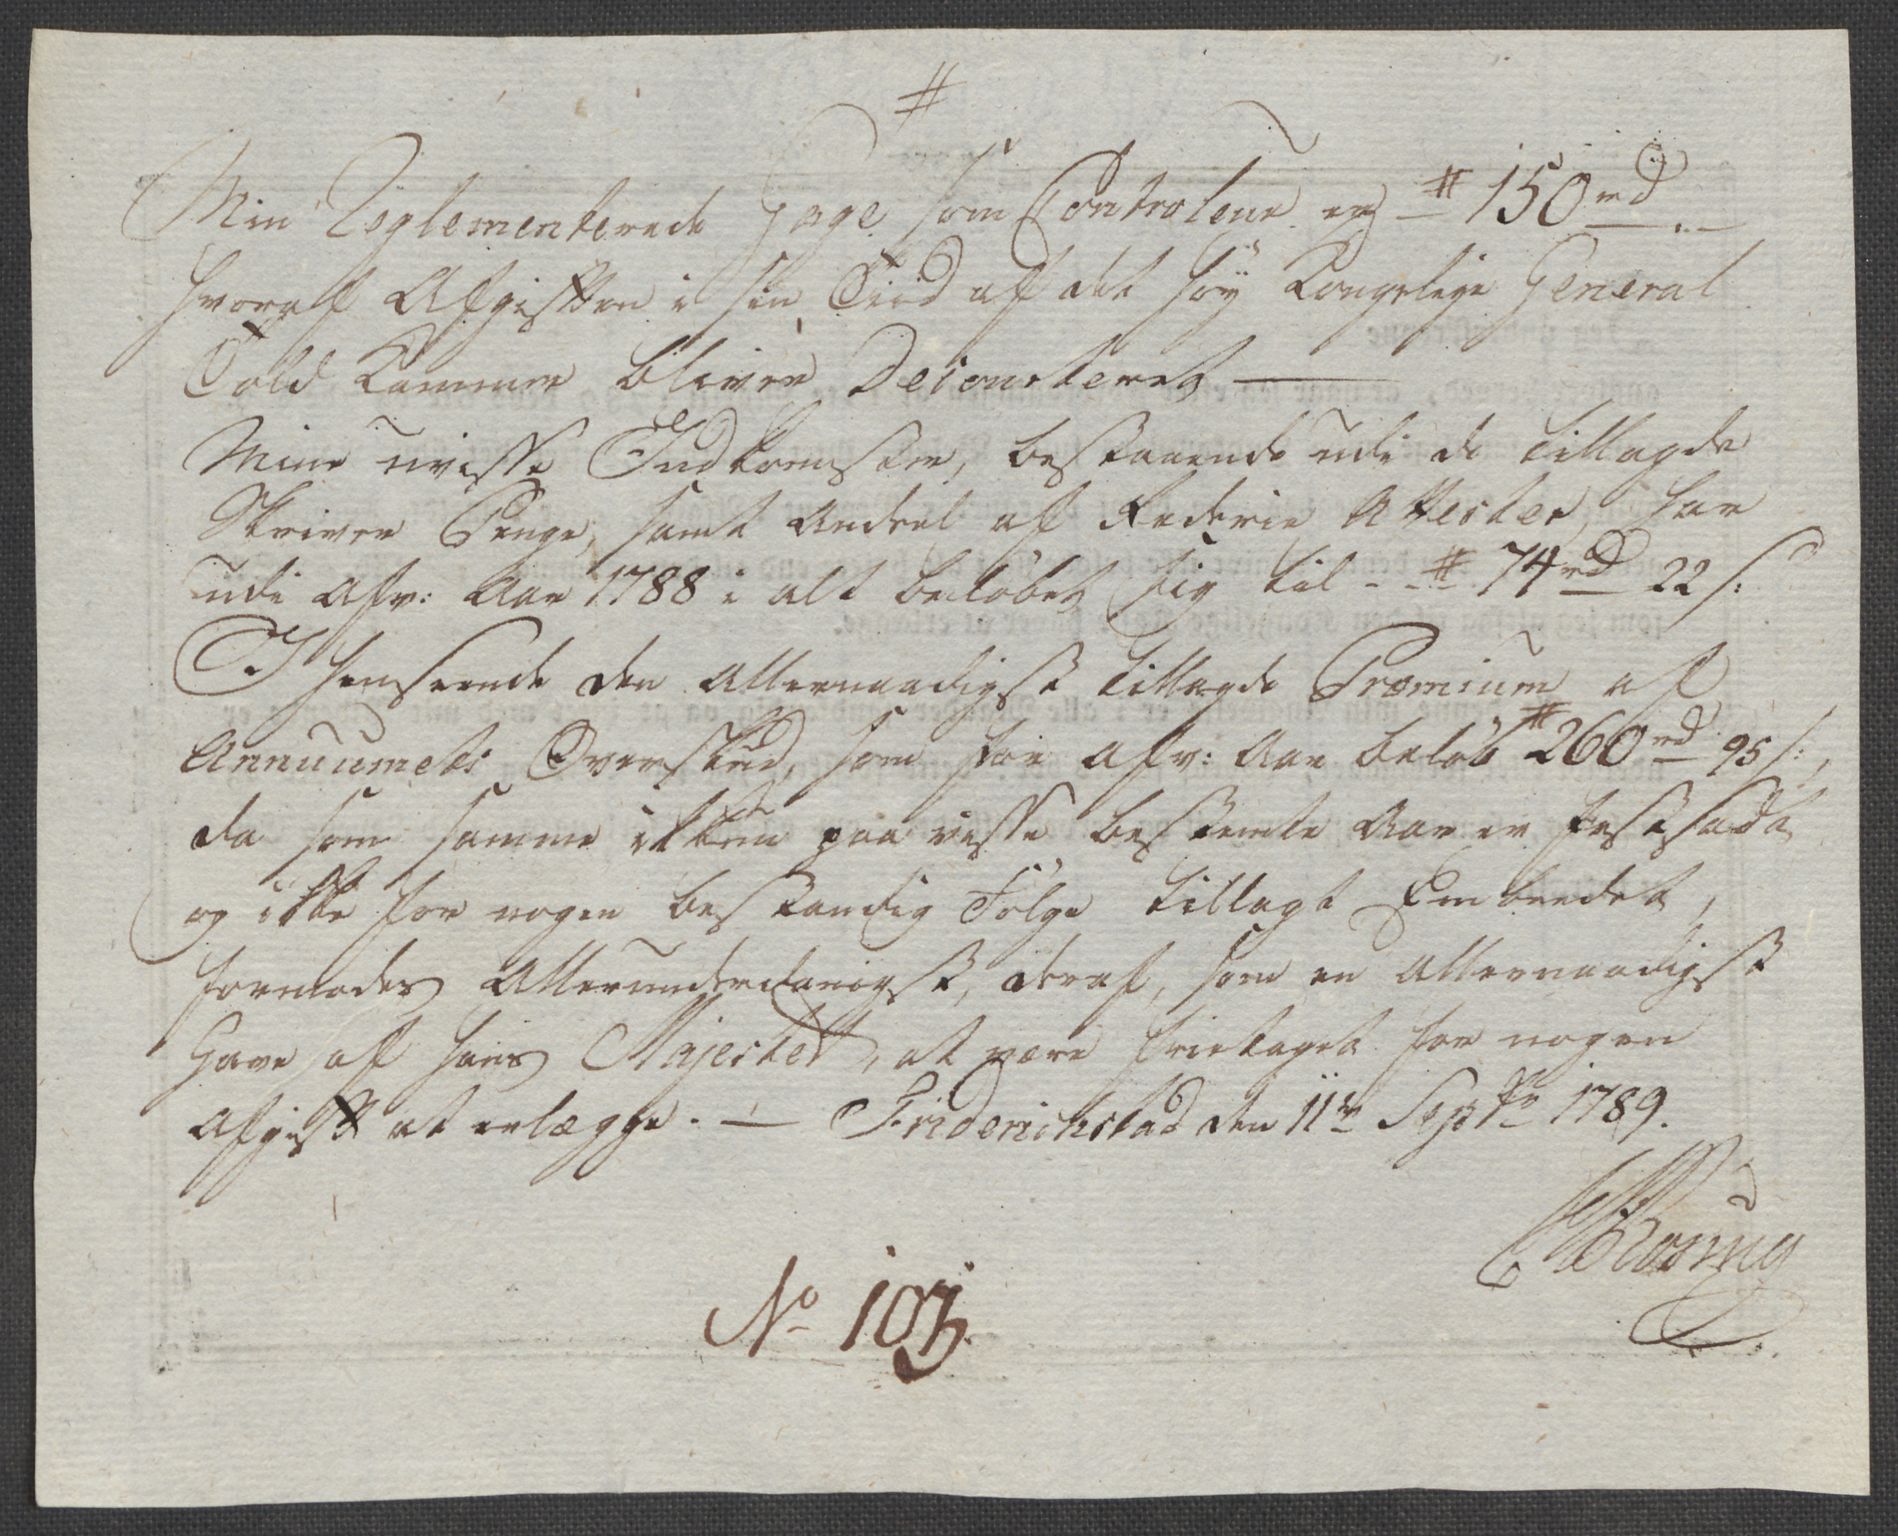 #
Min Reglementerede Gage som Controleur er # 150 rd
hvoraf Afgiften i sin Tiid af det høÿ Kongelige General
Told Kammer bliver Decourteret
Mine uvisse Indkomster, bestaaende udi de tillagde
Skriver Penge, samt Andeel af Rederie Attester, har
udi Afv: Aar 1788 i alt beløbet sig til - # 74 rd 22 s:
I henseende den Allernaadigst tillagde Præmium af
Annuumets Overskud, som for afv: Aar beløb # 260 rd 95 s:,
da som samme ikkun paa visse bestemte Aar er fastsadt
og ikke for nogen bestandig Følge tillagt Embeedet,
formodes Allerunderdanigst, deraf, som en Allernaadigst
Gave af Hans Majestet, at være frietaget for nogen
Afgift at erlægge. — Friderichstad den 11te Septr 1789.
No 103.